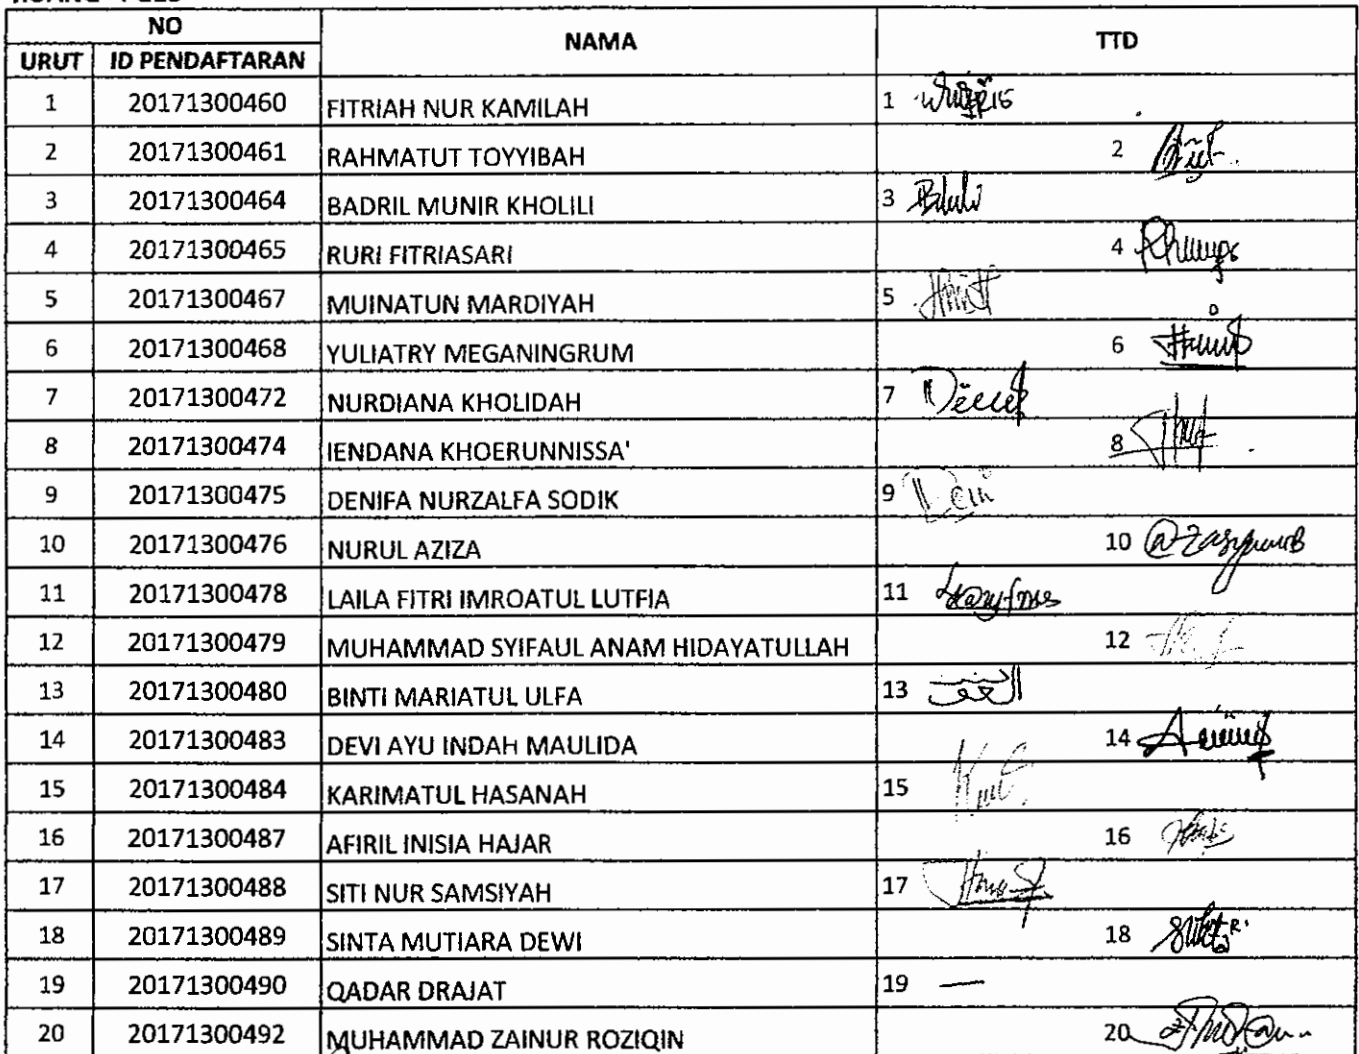 NO NAMA TTD
URUT ID PENDAFTARAN
1 20171300460 FITRIAH NUR KAMILAH 1
2 20171300461 RAHMATUT TOYYIBAH 2
3 20171300464 BADRIL MUNIR KHOLILI 3
4 20171300465 RURI FITRIASARI 4
5 20171300467 MUINATUN MARDIYAH 5
6 20171300468 YULIATRY MEGANINGRUM 6
7 20171300472 NURDIANA KHOLIDAH 7
8 20171300474 IENDANA KHOERUNNISSA' 8
9 20171300475 DENIFA NURZALFA SODIK 9
10 20171300476 NURUL AZIZA 10
11 20171300478 LAILA FITRI IMROATUL LUTFIA 11
12 20171300479 MUHAMMAD SYIFAUL ANAM HIDAYATULLAH 12
13 20171300480 BINTI MARIATUL ULFA 13
14 20171300483 DEVI AYU INDAH MAULIDA 14
15 20171300484 KARIMATUL HASANAH 15
16 20171300487 AFIRIL INISIA HAJAR 16
17 20171300488 SITI NUR SAMSIYAH 17
18 20171300489 SINTA MUTIARA DEWI 18
19 20171300490 QADAR DRAJAT 19 —
20 20171300492 MUHAMMAD ZAINUR ROZIQIN 20